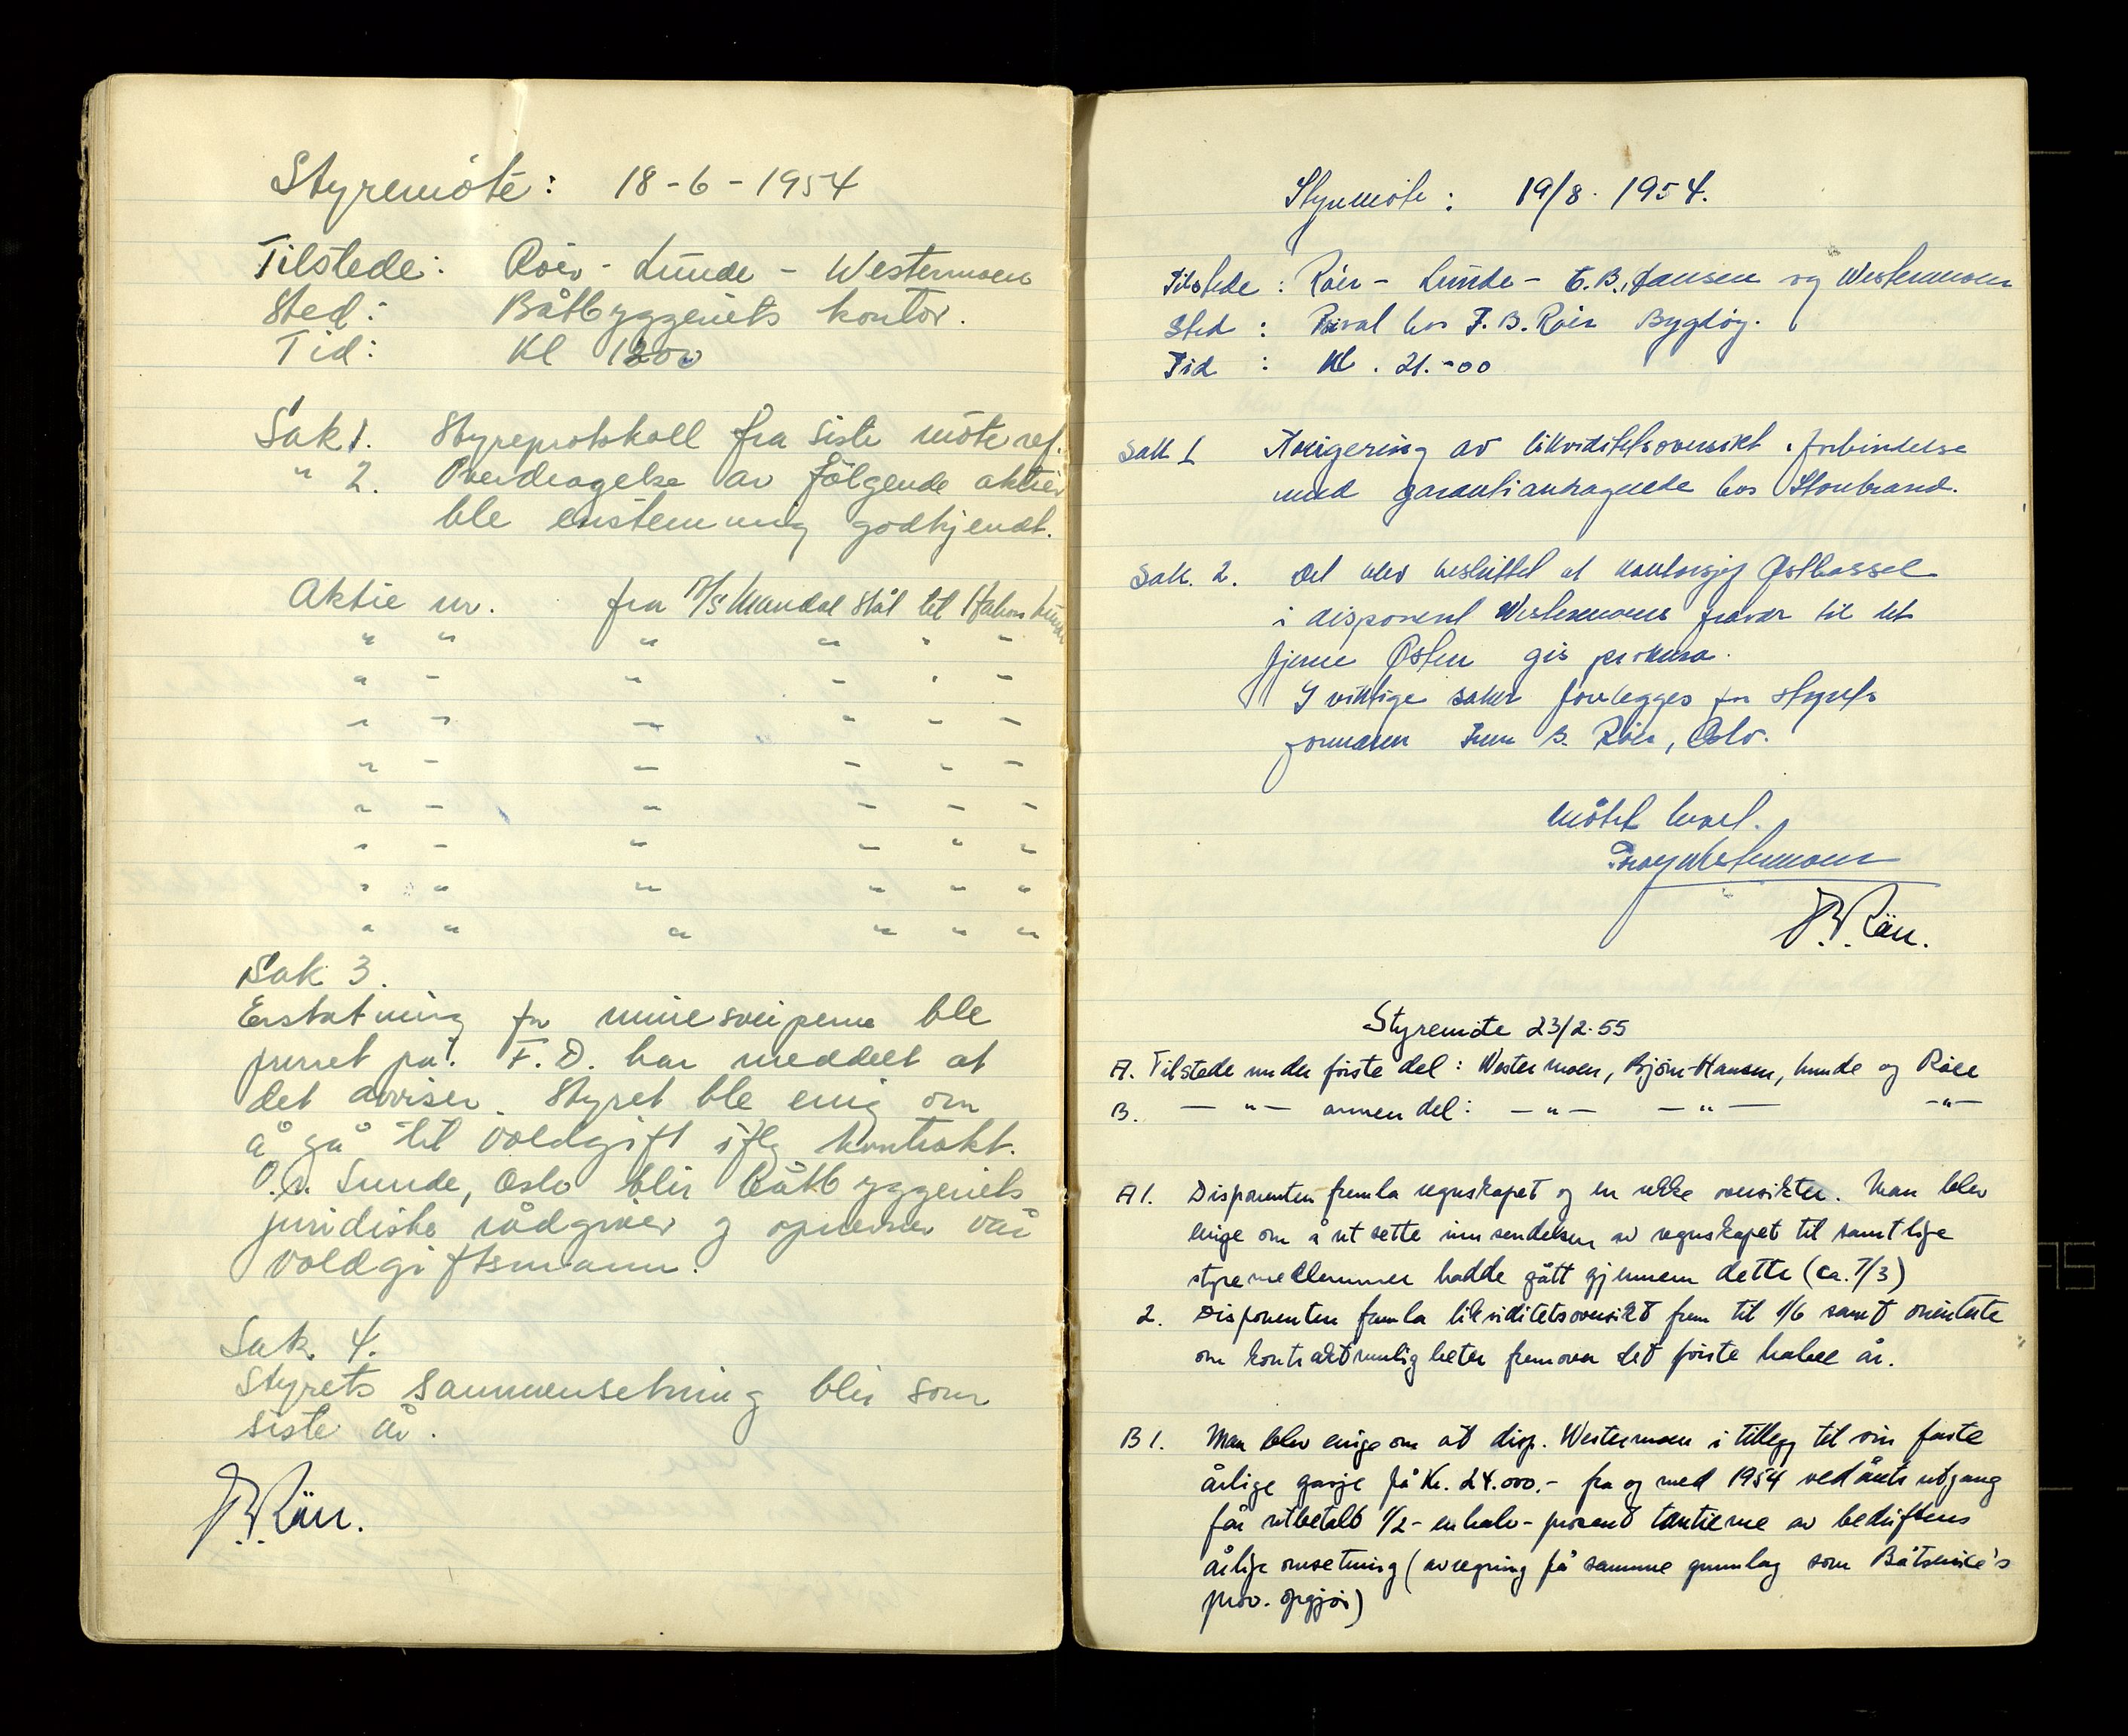 Styremöte: 18-6-1954
Tilstede: Röer - Lunde - Westermoen
Sted: Båtbyggeriets kontor.
Tid: Kl 1200
Sak 1. Styreprotokoll fra siste möte ref.
" 2. Overdragelse av fölgende aktier
ble enstemmig godkjendt.
Aktie nr. fra M/S Mandal Stål til Håkon Lunde
" " " " " "
" " " " " "
" " " " " "
" " " " " "
" " " " " "
" " " " " "
" " " " " "
" " " " " "
Sak 3.
Erstatning for minesveiperne ble
purret på. F.D. har meddelt at
det avviser. Styret ble enig om
å gå til voldgift iflg kontrakt.
Sunde, Oslo blir båtbyggeriets
juridiske rådgiver og opnevner vår
voldgiftsmann.
Sak. 4.
Styrets sammensetning blir som
siste år.
J.B. Röer.
Styremöte: 19/8. 1954.
Tilstede: Röer - Lunde - E.B. Hansen og Westermoen
Sted: Privat hos J.B. Röer Bygdöy.
Tid: Kl. 21.-00
Sak 1 Korigering av likviditetsoversikt i forbindelse
med garantiandragende hos Storebrand.
Sak. 2. Det blev besluttet at kontorsjef Østhassel
i disponent Westermoens fravær til det
fjerne Østen gis prokura.
I viktige saker forelegges for styrets
formann Jens B. Röer, Oslo.
Mötet hevet.
Westermoen
J.B. Röer.
Styremöte 23/2-55
A. Tilstede under förste del: Westermoen, Björn-Hansen, Lunde og Röer
B. — " — annen del: — " — — " — — " —
A1. Disponenten fremla regnskapet og en rekke oversikter. Man blev
enige om å utsette innsendelsen av regnskapet til samtlige
styremedlemmer hadde gått gjennem dette (ca. 7/3)
2. Disponenten fremla likviditetsoversikt frem til 1/6 samt orienterte
om kontraktmuligheter fremover det förste halve år.
B1. Man blev enige om at disp. Westermoen i tillegg til sin faste
årlige gasje på Kr. 24.000.- fra og med 1954 ved årets utgang
får utbetalt 1/2 - en halv - prosent tantieme av bedriftens
årlige omsetning (avregning på samme grunnlag som Båtservice's
prov. opgjör)